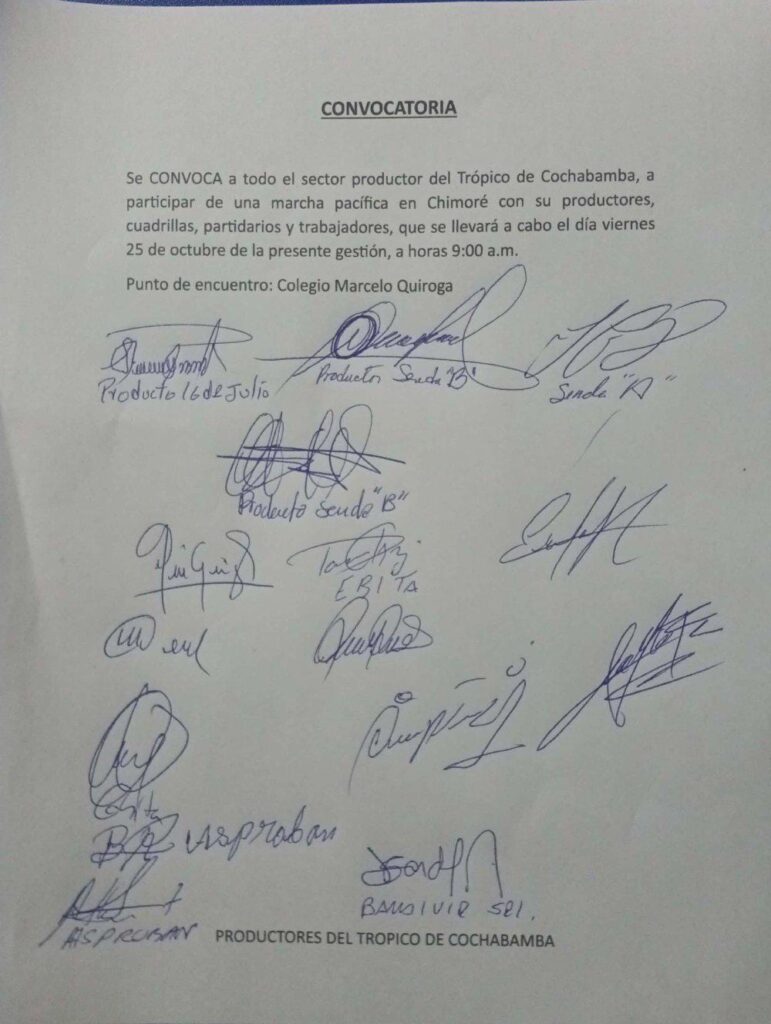 CONVOCATORIA
Se CONVOCA a todo el sector productor del Trópico de Cochabamba, a
participar de una marcha pacífica en Chimoré con su productores,
cuadrillas, partidarios y trabajadores, que se llevará a cabo el día viernes
25 de octubre de la presente gestión, a horas 9:00 a.m.
Punto de encuentro: Colegio Marcelo Quiroga
Producto 16 de Julio
Productor Senda "B"
Senda "A"
Producto Senda "B"
ERITA
Asproban
ASPROBAN
PRODUCTORES DEL TROPICO DE COCHABAMBA